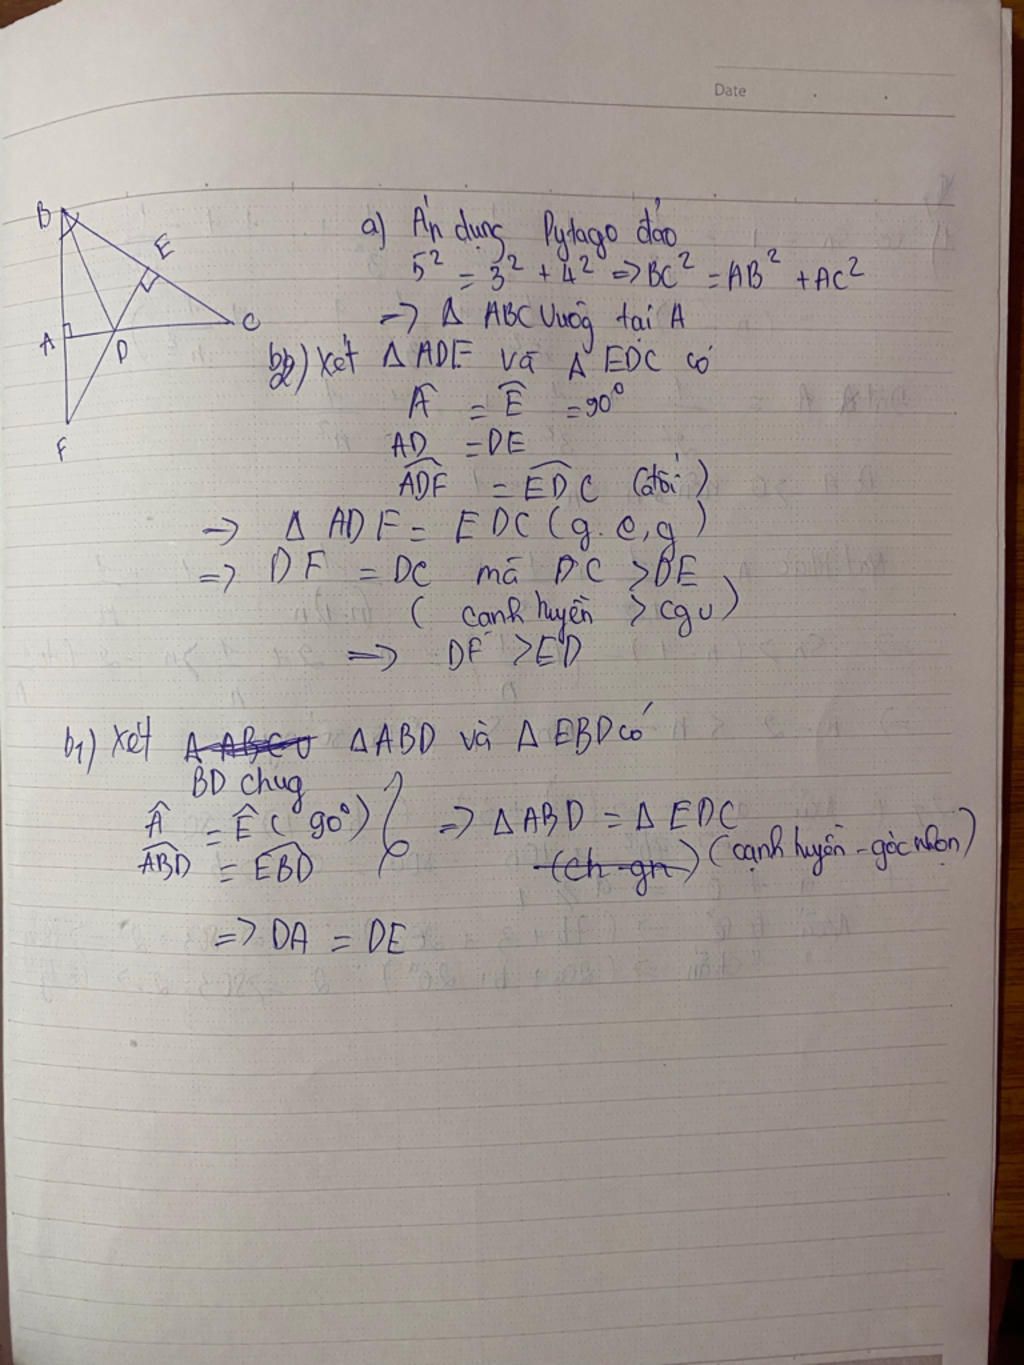 Date
B
E
A
D
C
F
a) Áp dụng Pytago đảo
5² = 3² + 4² => BC² = AB² + AC²
=> Δ ABC Vuôg tại A
b2) Xét Δ ADF và Δ EDC có
Â = Ê = 90°
AD = DE
ADF = EDC (đối)
=> Δ ADF = EDC (g.c.g)
=> DF = DC mà DC > DE
( cạnh huyền > cgv)
=> DF > ED
b1) Xét Δ ABD và Δ EBD có
BD chug
Â = Ê ( 90°)
ABD = EBD
=> Δ ABD = Δ EDC
(ch-gn) (cạnh huyền - góc nhọn)
=> DA = DE